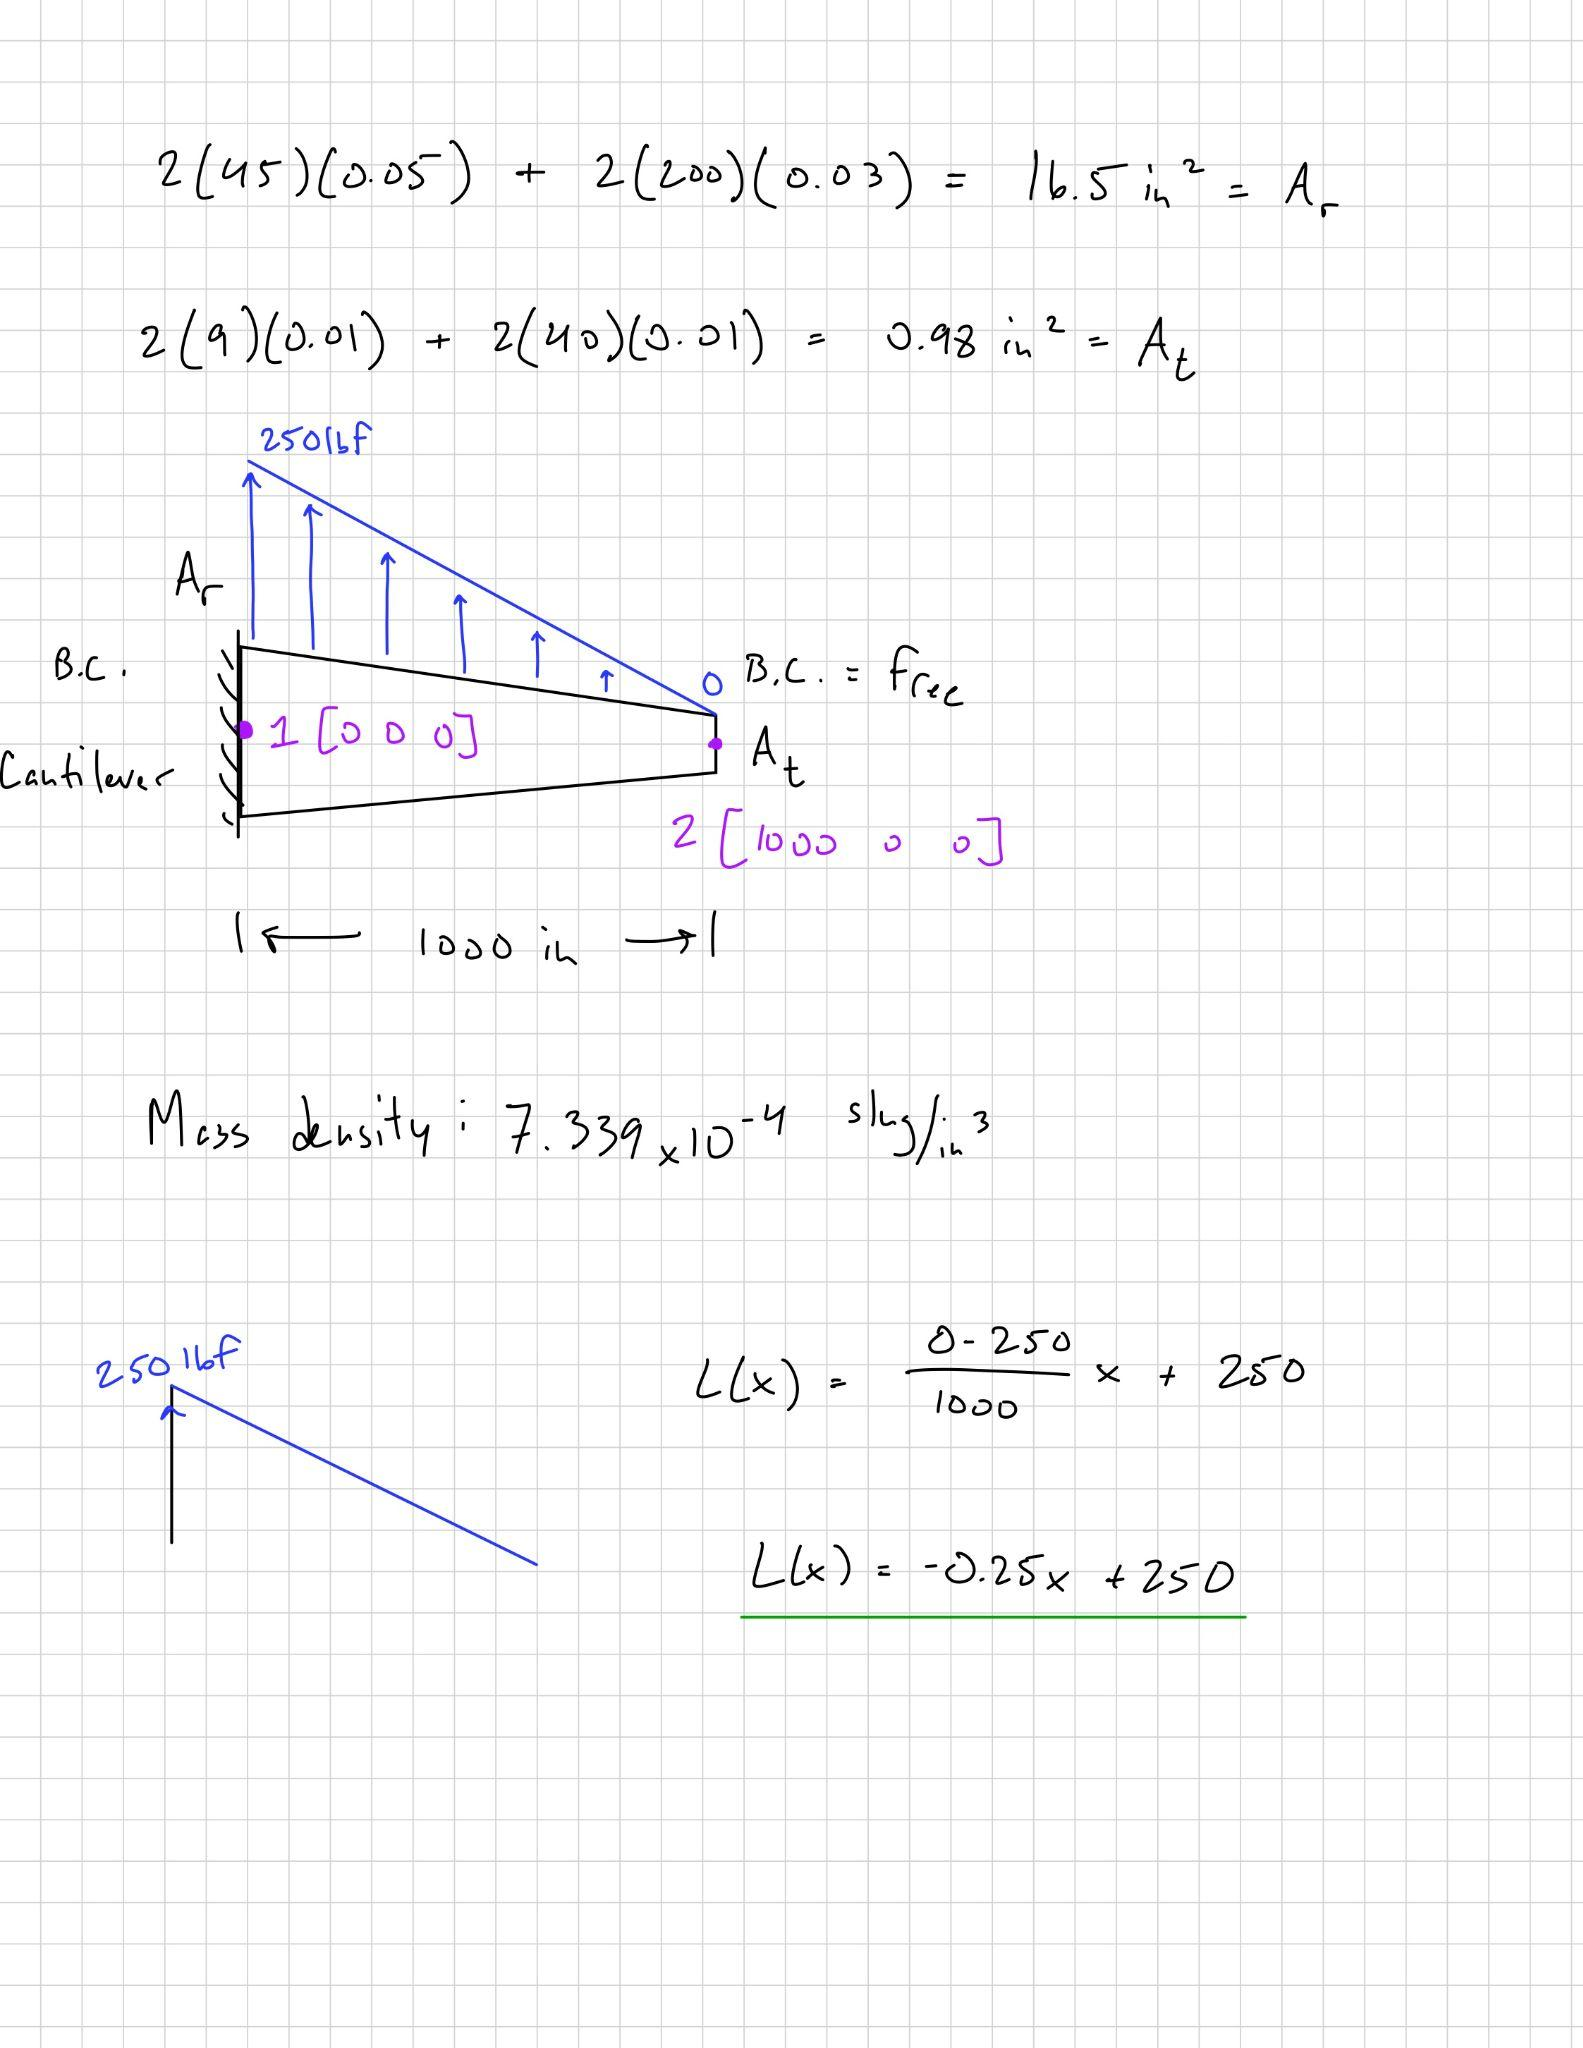 2(45)(0.05) + 2(200)(0.03) = 16.5 in² = Aᵣ
2(9)(0.01) + 2(40)(0.01) = 0.98 in² = Aₜ
250 lbf
Aᵣ
B.C.
0 B.C. = free
1 [0 0 0]
Aₜ
Cantilever
2 [1000 0 0]
|← 1000 in →|
Mass density: 7.339 x10⁻⁴ slug/in³
250 lbf
L(x) = (0-250)/1000 x + 250
L(x) = -0.25x + 250